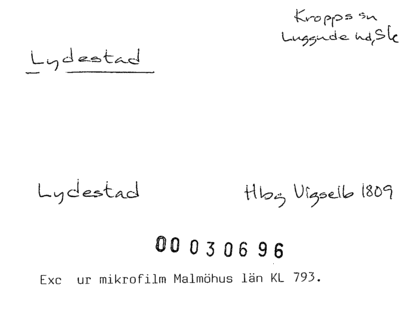 Kropps sn
Luggude hd, Sk
Lydestad
Lydestad Hbg Vigselb 1809
00030696
Exc ur mikrofilm Malmöhus län KL 793.